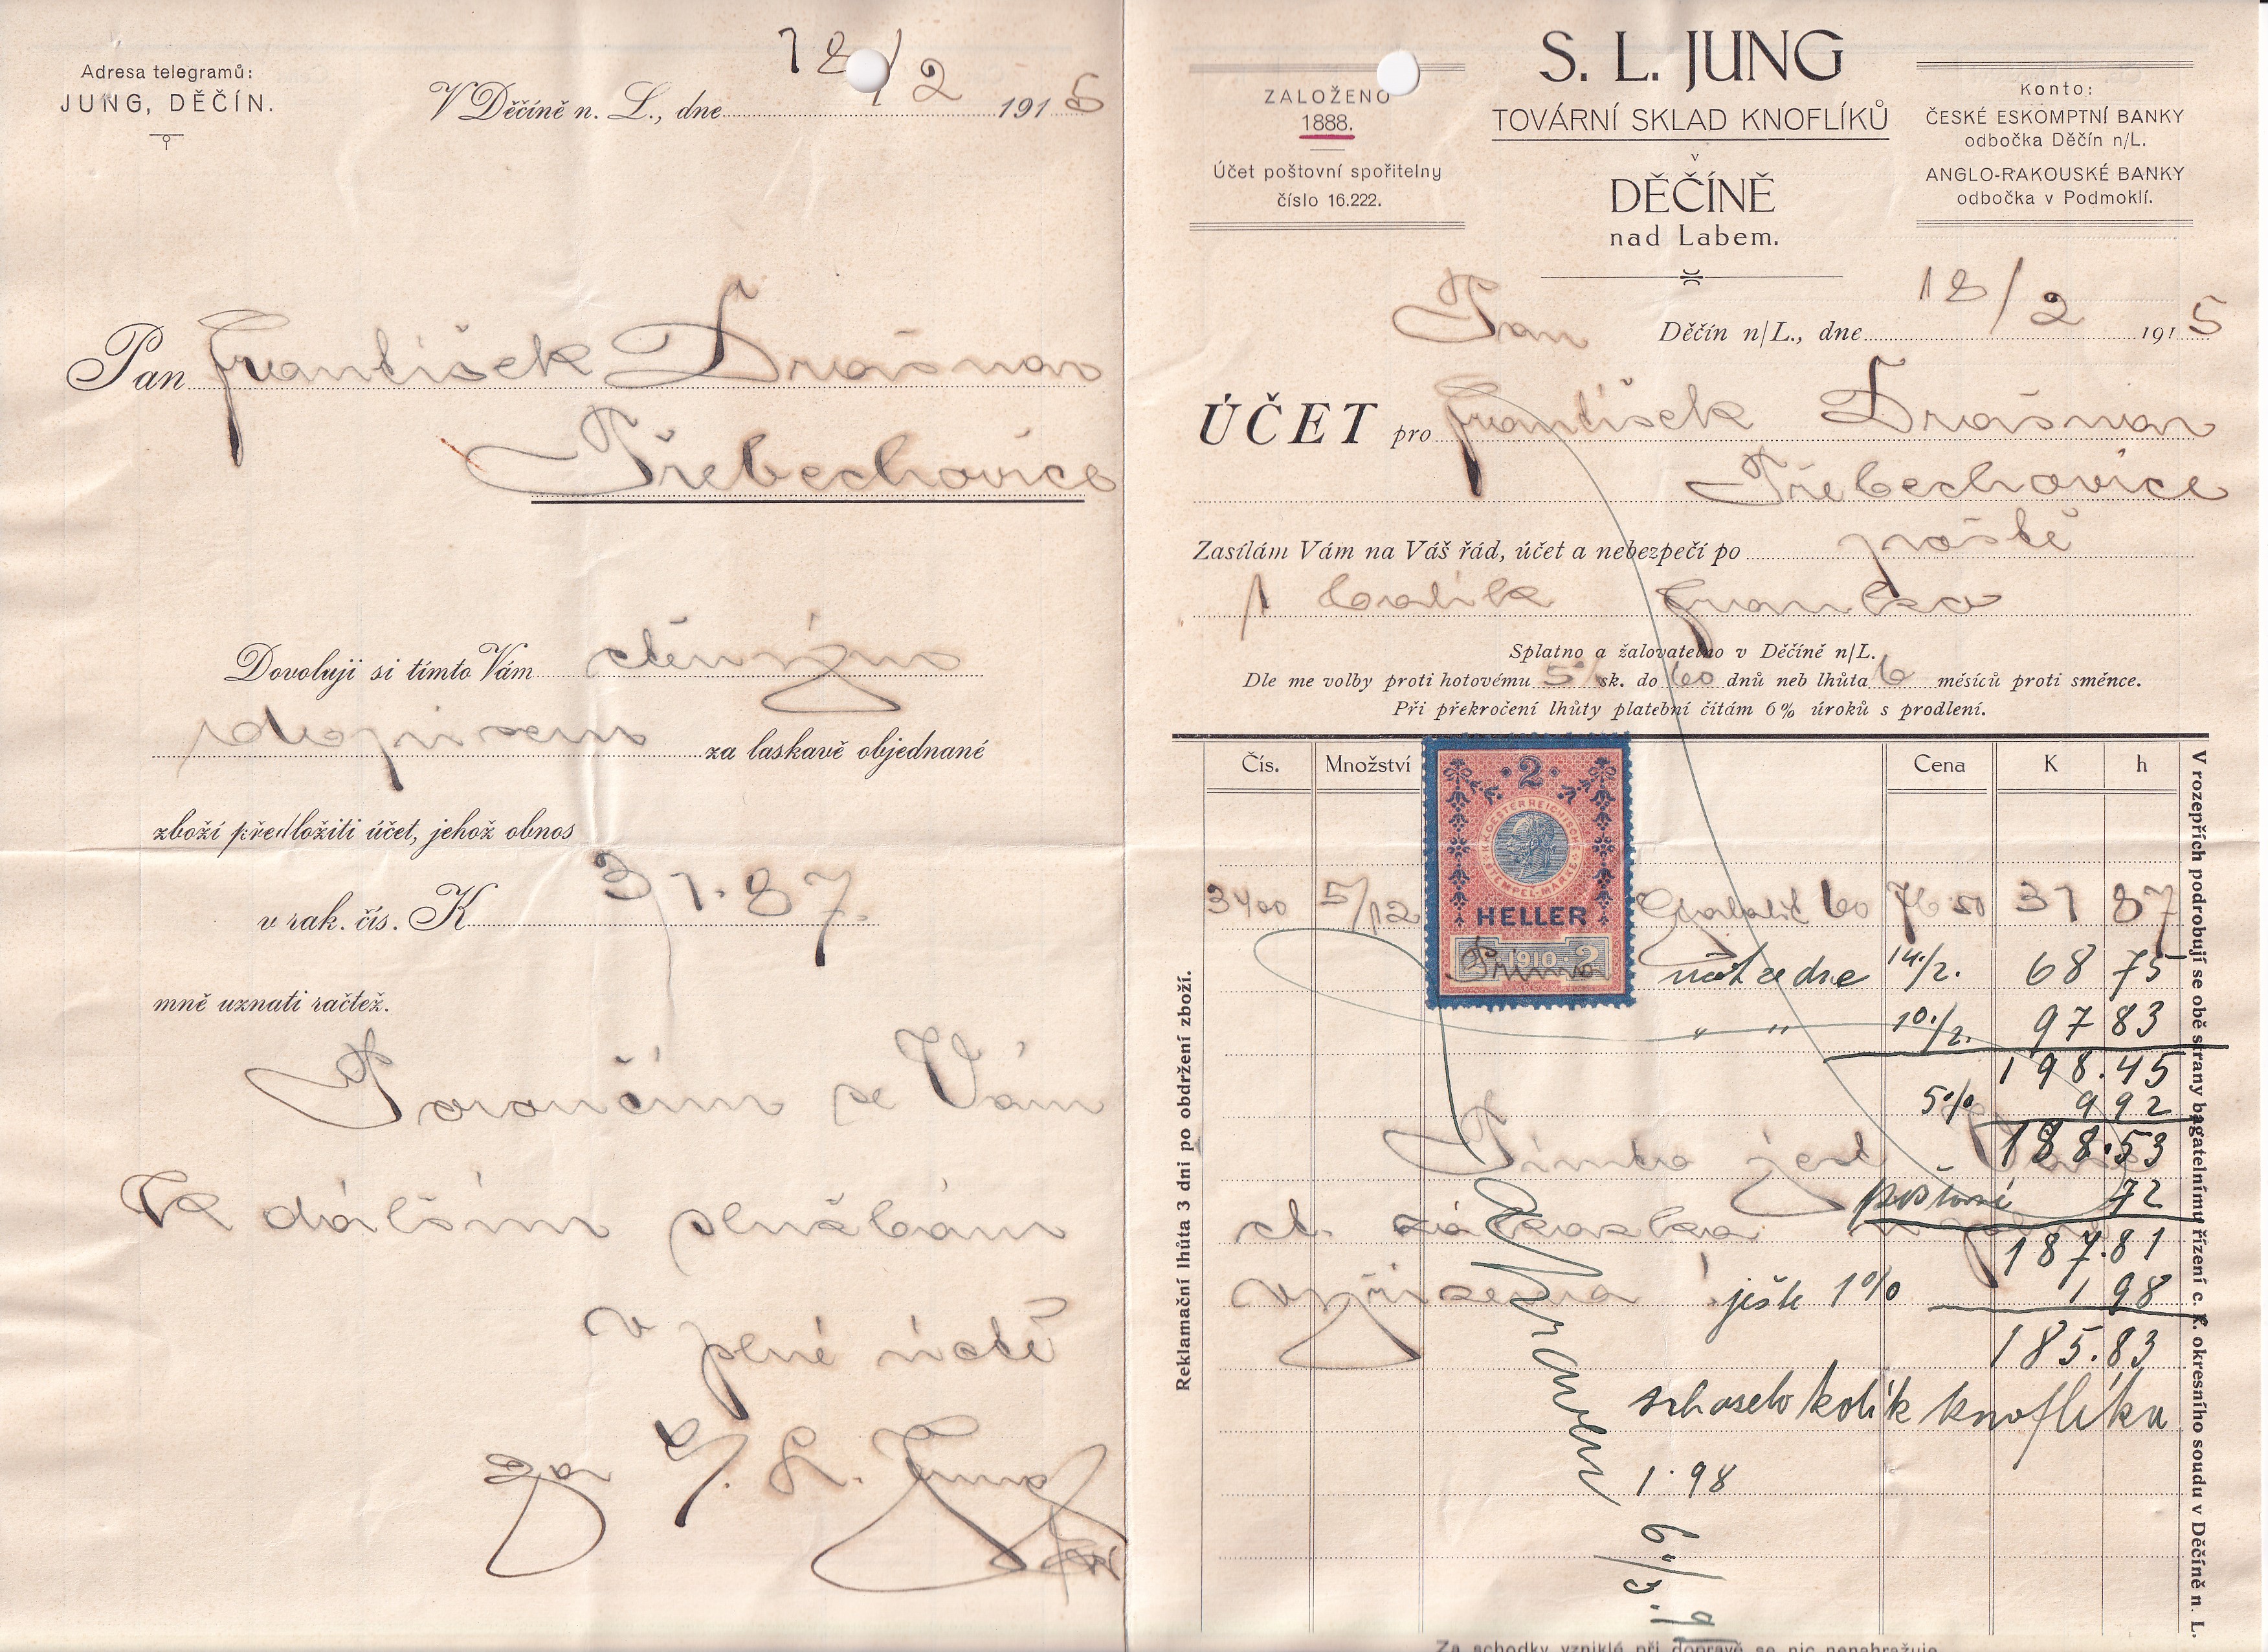 Adresa telegramů:
JUNG, DĚČÍN.
V Děčíně n. L., dne 18/2 1915
Pan František
Třebechovice
Dovoluji si tímto Vám ctěným
dopisem za laskavě objednané
zboží předložiti účet, jehož obnos
v rak. čís. K 31.87
mně uznati račtež.
Poroučím se Vám
k dalším službám
v plné úctě
S. L. Jung
S. L. JUNG
TOVÁRNÍ SKLAD KNOFLÍKŮ
v
DĚČÍNĚ
nad Labem.
ZALOŽENO
1888.
Účet poštovní spořitelny
číslo 16.222.
Konto:
ČESKÉ ESKOMPTNÍ BANKY
odbočka Děčín n/L.
ANGLO-RAKOUSKÉ BANKY
odbočka v Podmoklí.
Pan Děčín n/L., dne 18/2 1915
ÚČET pro František
Třebechovice
Zasílám Vám na Váš řád, účet a nebezpečí po poště
1 balík franko
Splatno a žalovatelno v Děčíně n/L.
Dle me volby proti hotovému 5% sk. do 60 dnů neb lhůta 6 měsíců proti směnce.
Při překročení lhůty platební čítám 6% úroků s prodlení.
Čís. Množství Cena K h
2
K·K·OESTERREICHISCHE
STEMPEL-MARKE
HELLER
1910 2
Prima
3400 5/12 60 76.50 31 87
účet ze dne 14./2. 68 75
„ „ 10./2. 97 83
198.45
5% 992
188.53
poštovné 72
187.81
ještě 1% 1 98
185.83
Tímto jest Vaše
ct. zakázka úplně
vyřízena!
scházelo kolik knoflíku
1.98
6./3.
Reklamační lhůta 3 dni po obdržení zboží.
V rozepřích podrobují se obě strany bagatelnímu řízení c. k. okresního soudu v Děčíně n. L.
Za schodky vzniklé při dopravě se nic nenahražuje